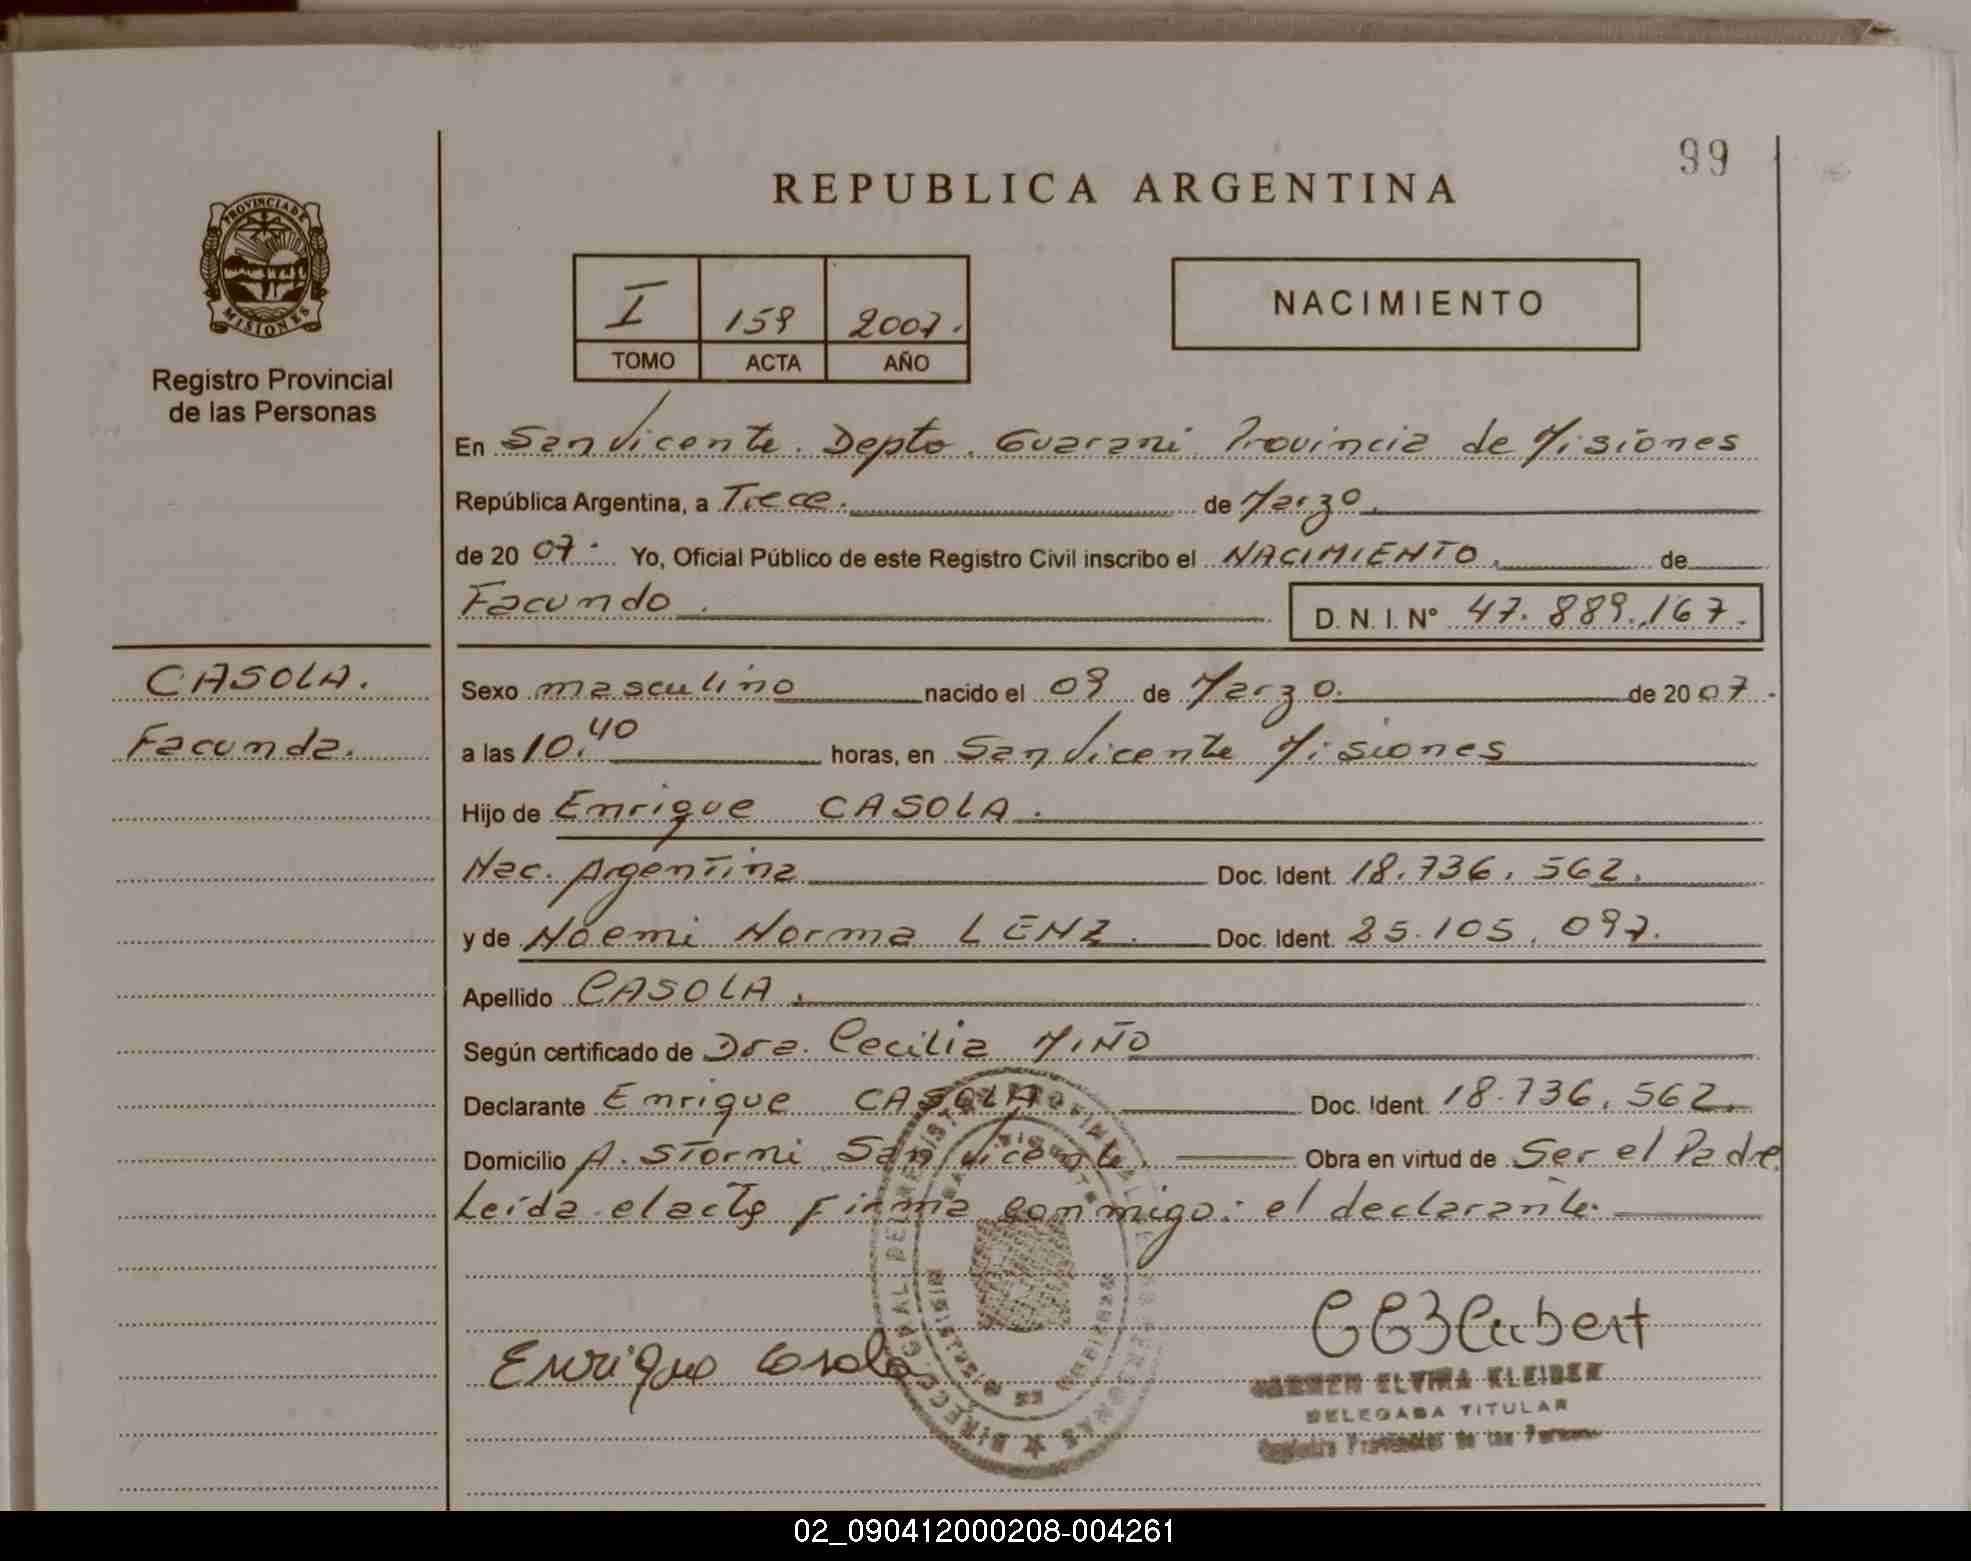 99
REPUBLICA ARGENTINA
PROVINCIA DE
MISIONES
Registro Provincial
de las Personas
I 159 2007.
TOMO ACTA AÑO
NACIMIENTO
En San Vicente. Depto. Guarani Provincia de Misiones
República Argentina, a Trece. de Marzo.
de 20 07. Yo, Oficial Público de este Registro Civil inscribo el NACIMIENTO. de
Facundo. D. N. I. Nº 47.889.167.
CASOLA.
Facundo.
Sexo masculino nacido el 09 de Marzo. de 20 07.
a las 10.40 horas, en San Vicente Misiones
Hijo de Enrique CASOLA.
Nac. Argentina Doc. Ident. 18.736.562.
y de Noemi Norma LENZ. Doc. Ident. 25.105.097.
Apellido CASOLA.
Según certificado de Dra. Cecilia MIÑO
Declarante Enrique CASOLA. Doc. Ident. 18.736.562.
Domicilio A. Storni San Vicente. Obra en virtud de Ser el Padre
Leída el acta firma conmigo: el declarante.
Enrique Casola
CARMEN ELVIRA KLEIBER
DELEGADA TITULAR
Registro Provincial de las Personas
02_090412000208-004261